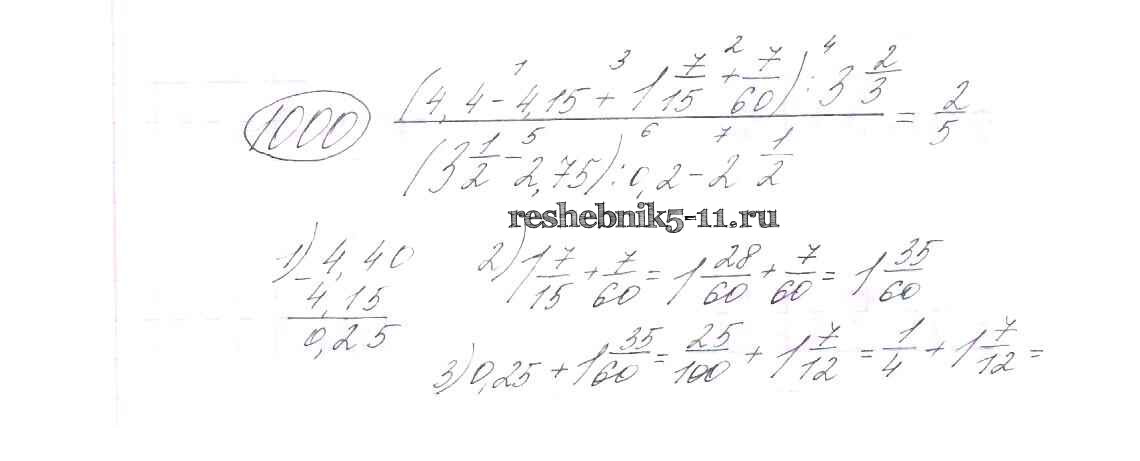 1000 ((4,4 - 4,15 + 1 7/15 + 7/60) : 3 2/3) / ((3 1/2 - 2,75) : 0,2 - 2 1/2) = 2/5
1 3 2 4
5 6 7
reshebnik5-11.ru
1) 4,40 - 4,15 = 0,25
2) 1 7/15 + 7/60 = 1 28/60 + 7/60 = 1 35/60
3) 0,25 + 1 35/60 = 25/100 + 1 7/12 = 1/4 + 1 7/12 =